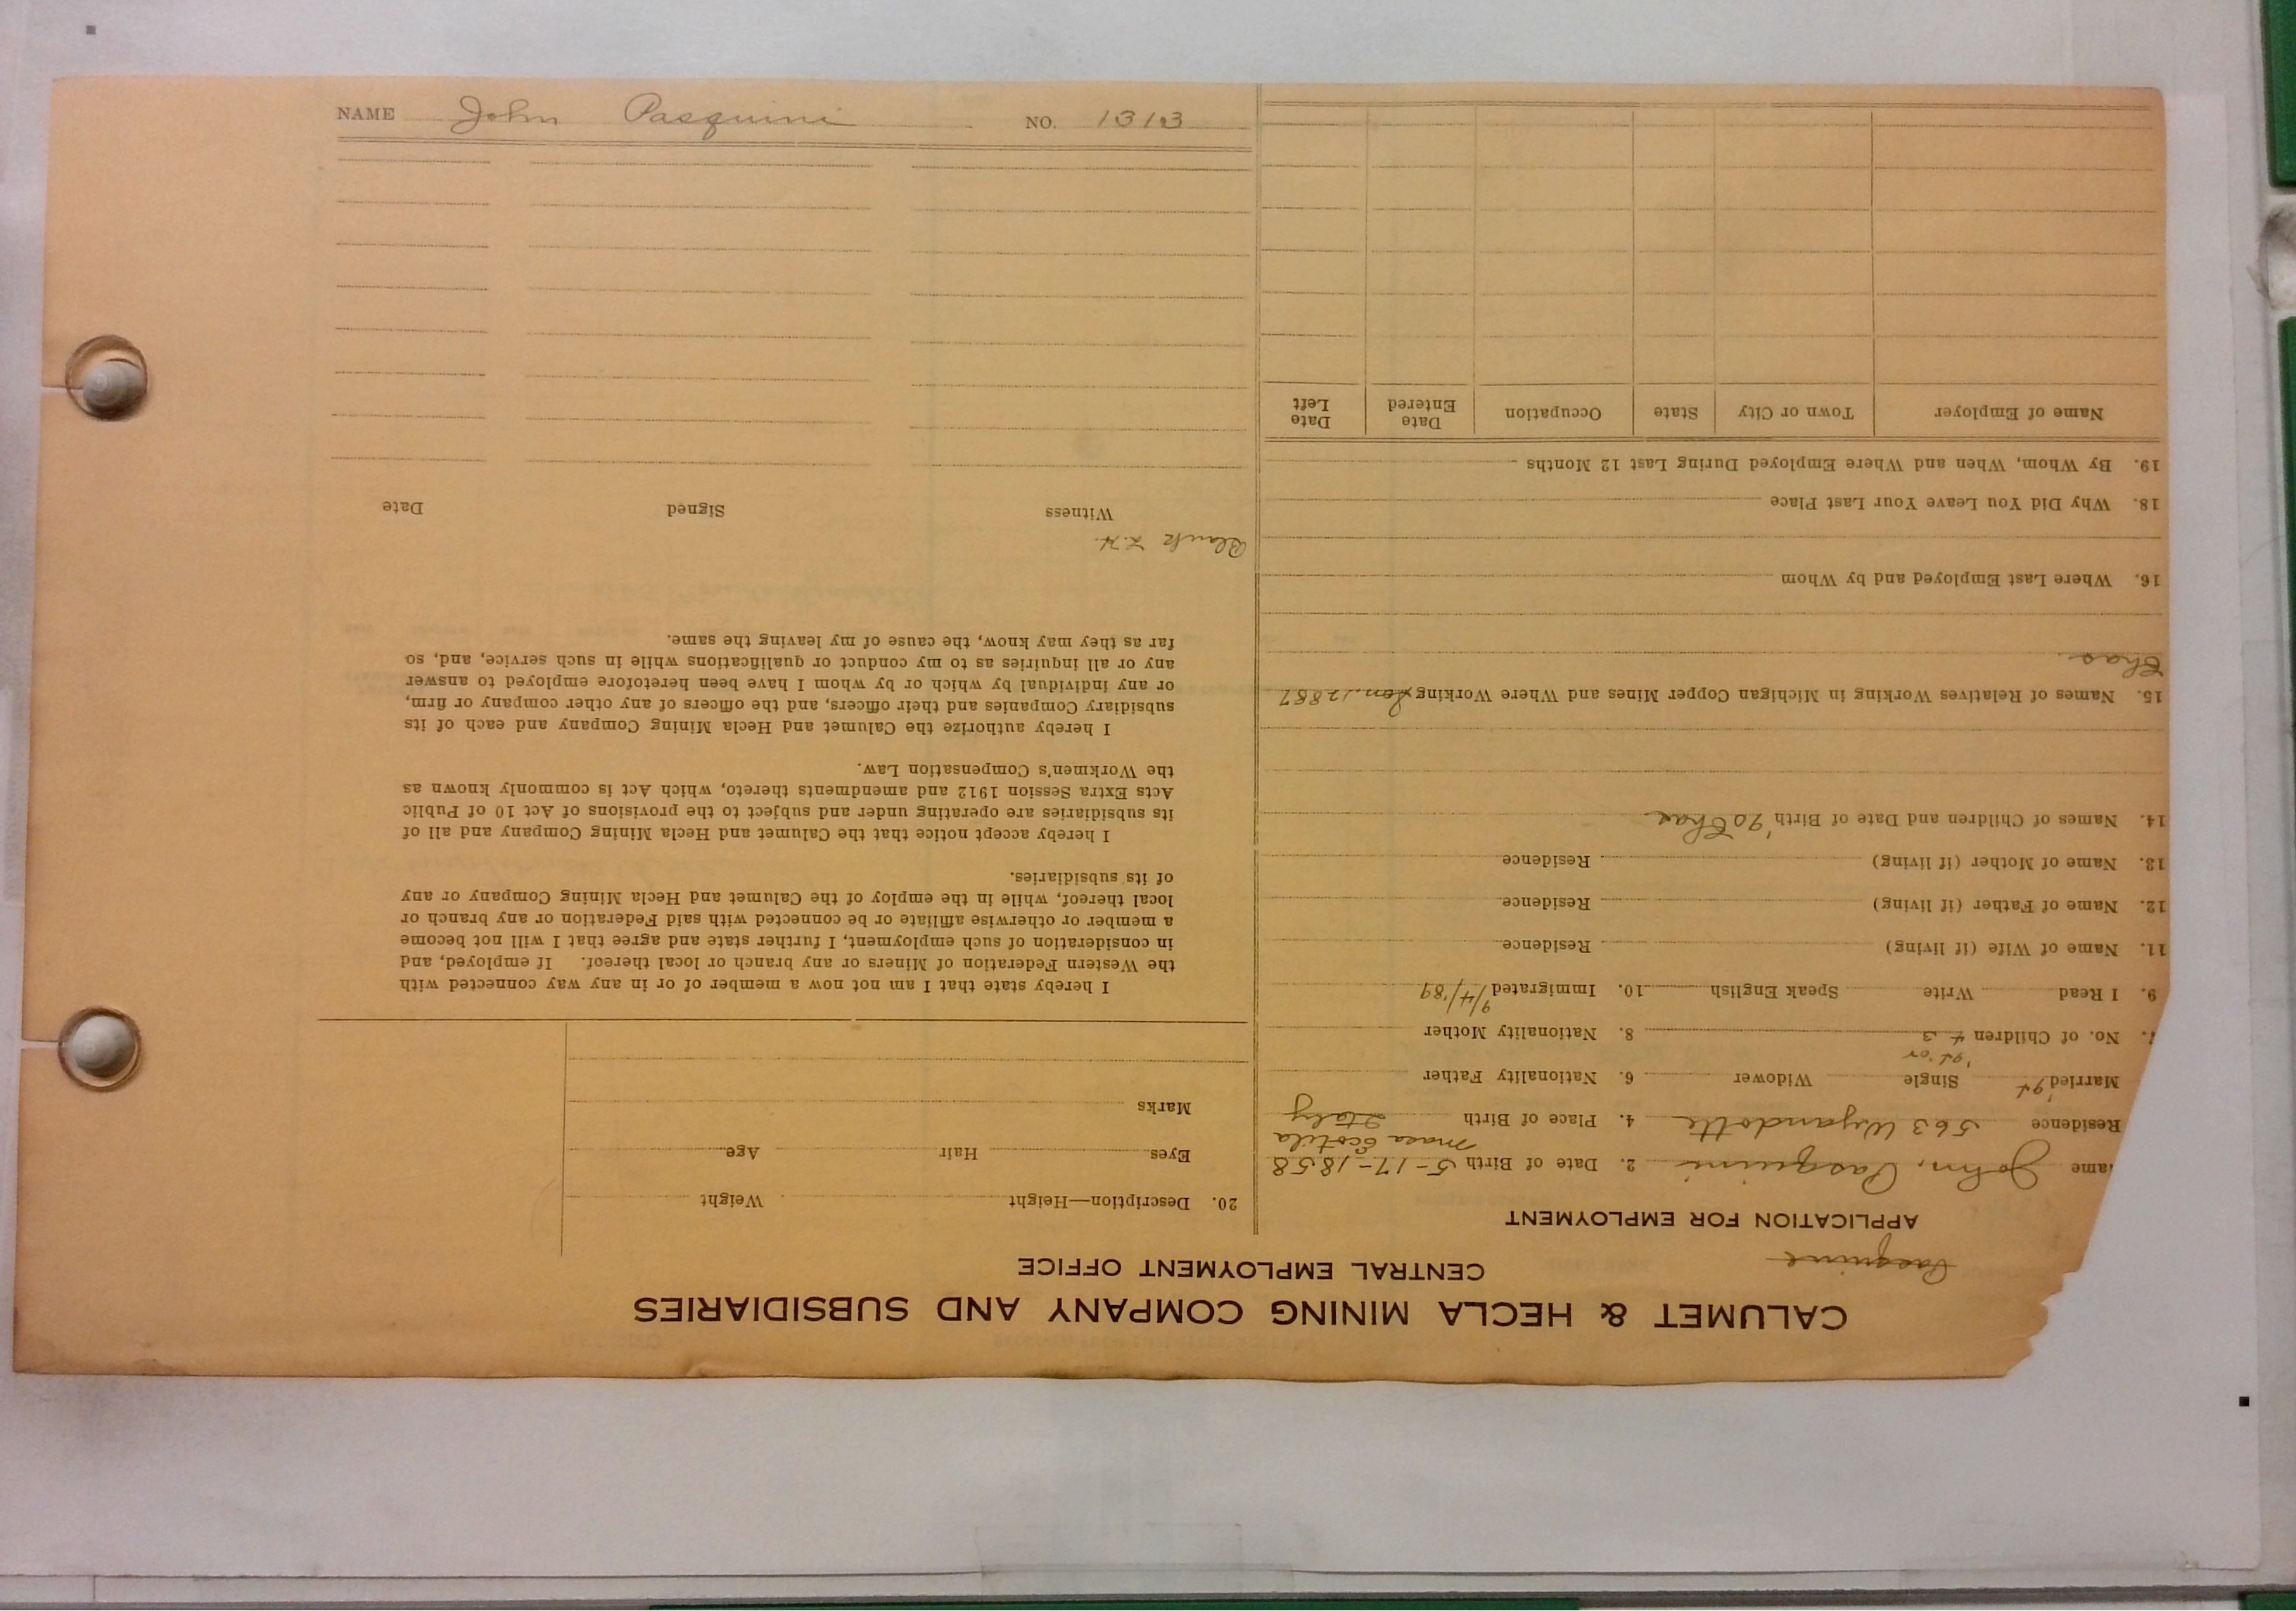 NAME John Pasquini NO. 1313
CALUMET & HECLA MINING COMPANY AND SUBSIDIARIES
CENTRAL EMPLOYMENT OFFICE
Pasquini
APPLICATION FOR EMPLOYMENT
ame John Pasquini 2. Date of Birth 5-17-1858
Residence 563 Wyandotte 4. Place of Birth Italy
Married '94 Single Widower 6. Nationality Father
'94 or
7. No. of Children 4 3 8. Nationality Mother
9. I Read Write Speak English 10. Immigrated 9/4/'89
11. Name of Wife (if living) Residence
12. Name of Father (if living) Residence
13. Name of Mother (if living) Residence
14. Names of Children and Date of Birth '20 Chas
15. Names of Relatives Working in Michigan Copper Mines and Where Working Son. 12887
Chas.
16. Where Last Employed and by Whom
18. Why Did You Leave Your Last Place
19. By Whom, When and Where Employed During Last 12 Months
Name of Employer Town or City State Occupation Date Entered Date Left
20. Description—Height Weight
Eyes Hair Age
Marks
I hereby state that I am not now a member of or in any way connected with
the Western Federation of Miners or any branch or local thereof. If employed, and
in consideration of such employment, I further state and agree that I will not become
a member or otherwise affiliate or be connected with said Federation or any branch or
local thereof, while in the employ of the Calumet and Hecla Mining Company or any
of its subsidiaries.
I hereby accept notice that the Calumet and Hecla Mining Company and all of
its subsidiaries are operating under and subject to the provisions of Act 10 of Public
Acts Extra Session 1912 and amendments thereto, which Act is commonly known as
the Workmen's Compensation Law.
I hereby authorize the Calumet and Hecla Mining Company and each of its
subsidiary Companies and their officers, and the officers of any other company or firm,
or any individual by which or by whom I have been heretofore employed to answer
any or all inquiries as to my conduct or qualifications while in such service, and, so
far as they may know, the cause of my leaving the same.
Blank
Witness Signed Date